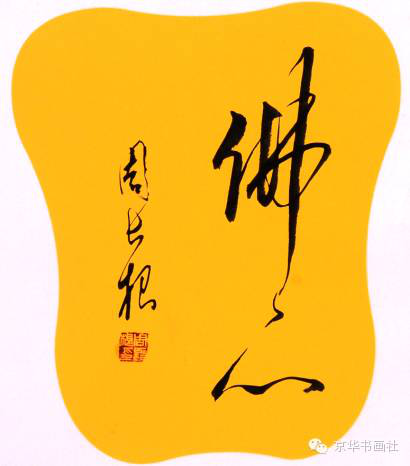 佛心
周长根
京华书画社